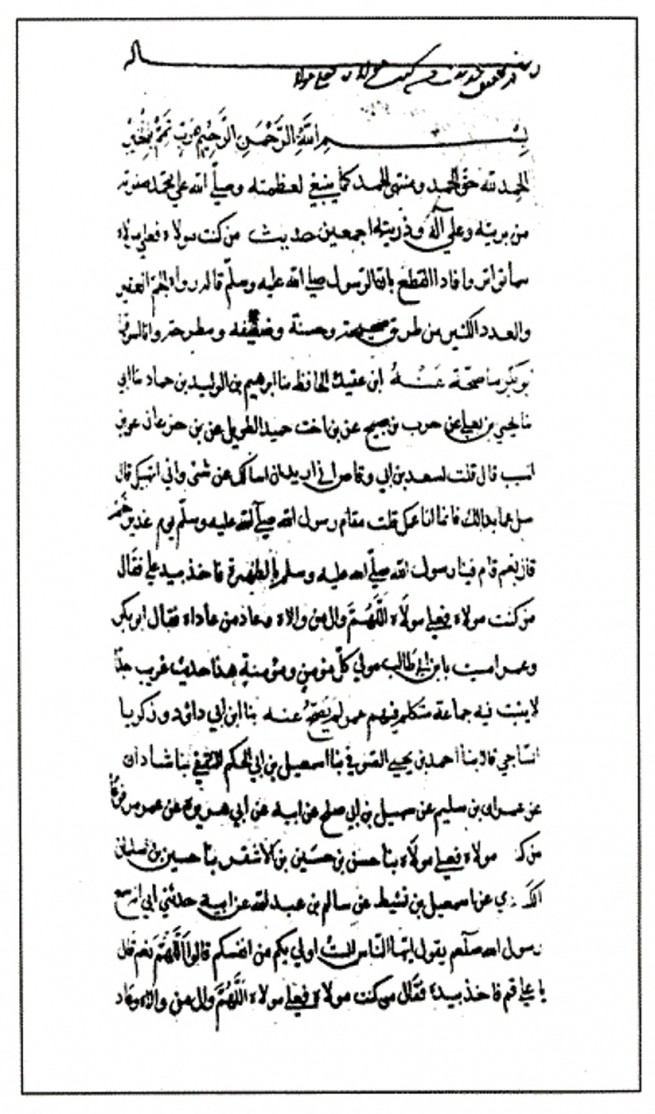 رساله در تحقیق حدیث من کنت مولاه فعلي مولاه
بسم الله الرحمن الرحيم رب تمم بخير
الحمد لله حق الحمد ومنتهى الحمد كما ينبغي لعظمته وصلى الله على محمد صفوته
من بريته وعلى آله وذريته اجمعين حديث من كنت مولاه فعلي مولاه
مما تواتر وافاد القطع بان الرسول صلى الله عليه وسلم قاله رواه الجم الغفير
والعدد الكثير من طرق صحيحة وحسنة وضعيفة ومطرحة وانا اسوقها
ابو بكر ما صحة عنه ابن عقدة الحافظ نا ابرهيم بن الوليد بن حماد نا ابي
نا يحيى بن يعلى عن حرب بن صبيح عن بن اخت حميد الطويل عن بن جدعان عن بن
المسيب قال قلت لسعد بن ابي وقاص اني اريد ان اسالك عن شئ واني اتقيك قال
سل عما بدا لك فانما انا عمك قلت مقام رسول الله صلى الله عليه وسلم يوم غدير خم
قال نعم قام فينا رسول الله صلى الله عليه وسلم بالظهيرة فاخذ بيد علي فقال
من كنت مولاه فعلي مولاه اللهم وال من والاه وعاد من عاداه فقال ابو بكر
وعمر امسيت يا بن ابي طالب مولى كل مؤمن ومؤمنة هذا حديث غريب جدا
لا يثبت فيه جماعة متكلم فيهم عمر لم يصح عنه بنا ابن ابي داؤد وزكريا
الساجي قالا بنا احمد بن يحيى الصوفي بنا اسمعيل بن ابي الحكم الثقفي بنا شاذان
عن عمران بن سليم عن سهيل بن ابي صالح عن ابيه عن ابي هريرة عن عمر مرفوعا
من ك مولاه فعلي مولاه بنا حسن بن حسين بن الاشقر بنا حسين بن سليمان
الك ي عن اسمعيل بن نشيط عن سالم بن عبد الله عن ابيه حدثني ابي انه سمع
رسول الله صلعم يقول ايها الناس الست اولى بكم من انفسكم قالوا اللهم نعم قال
يا علي قم فاخذ بيده فقال من كنت مولاه فعلي مولاه اللهم وال من والاه وعاد